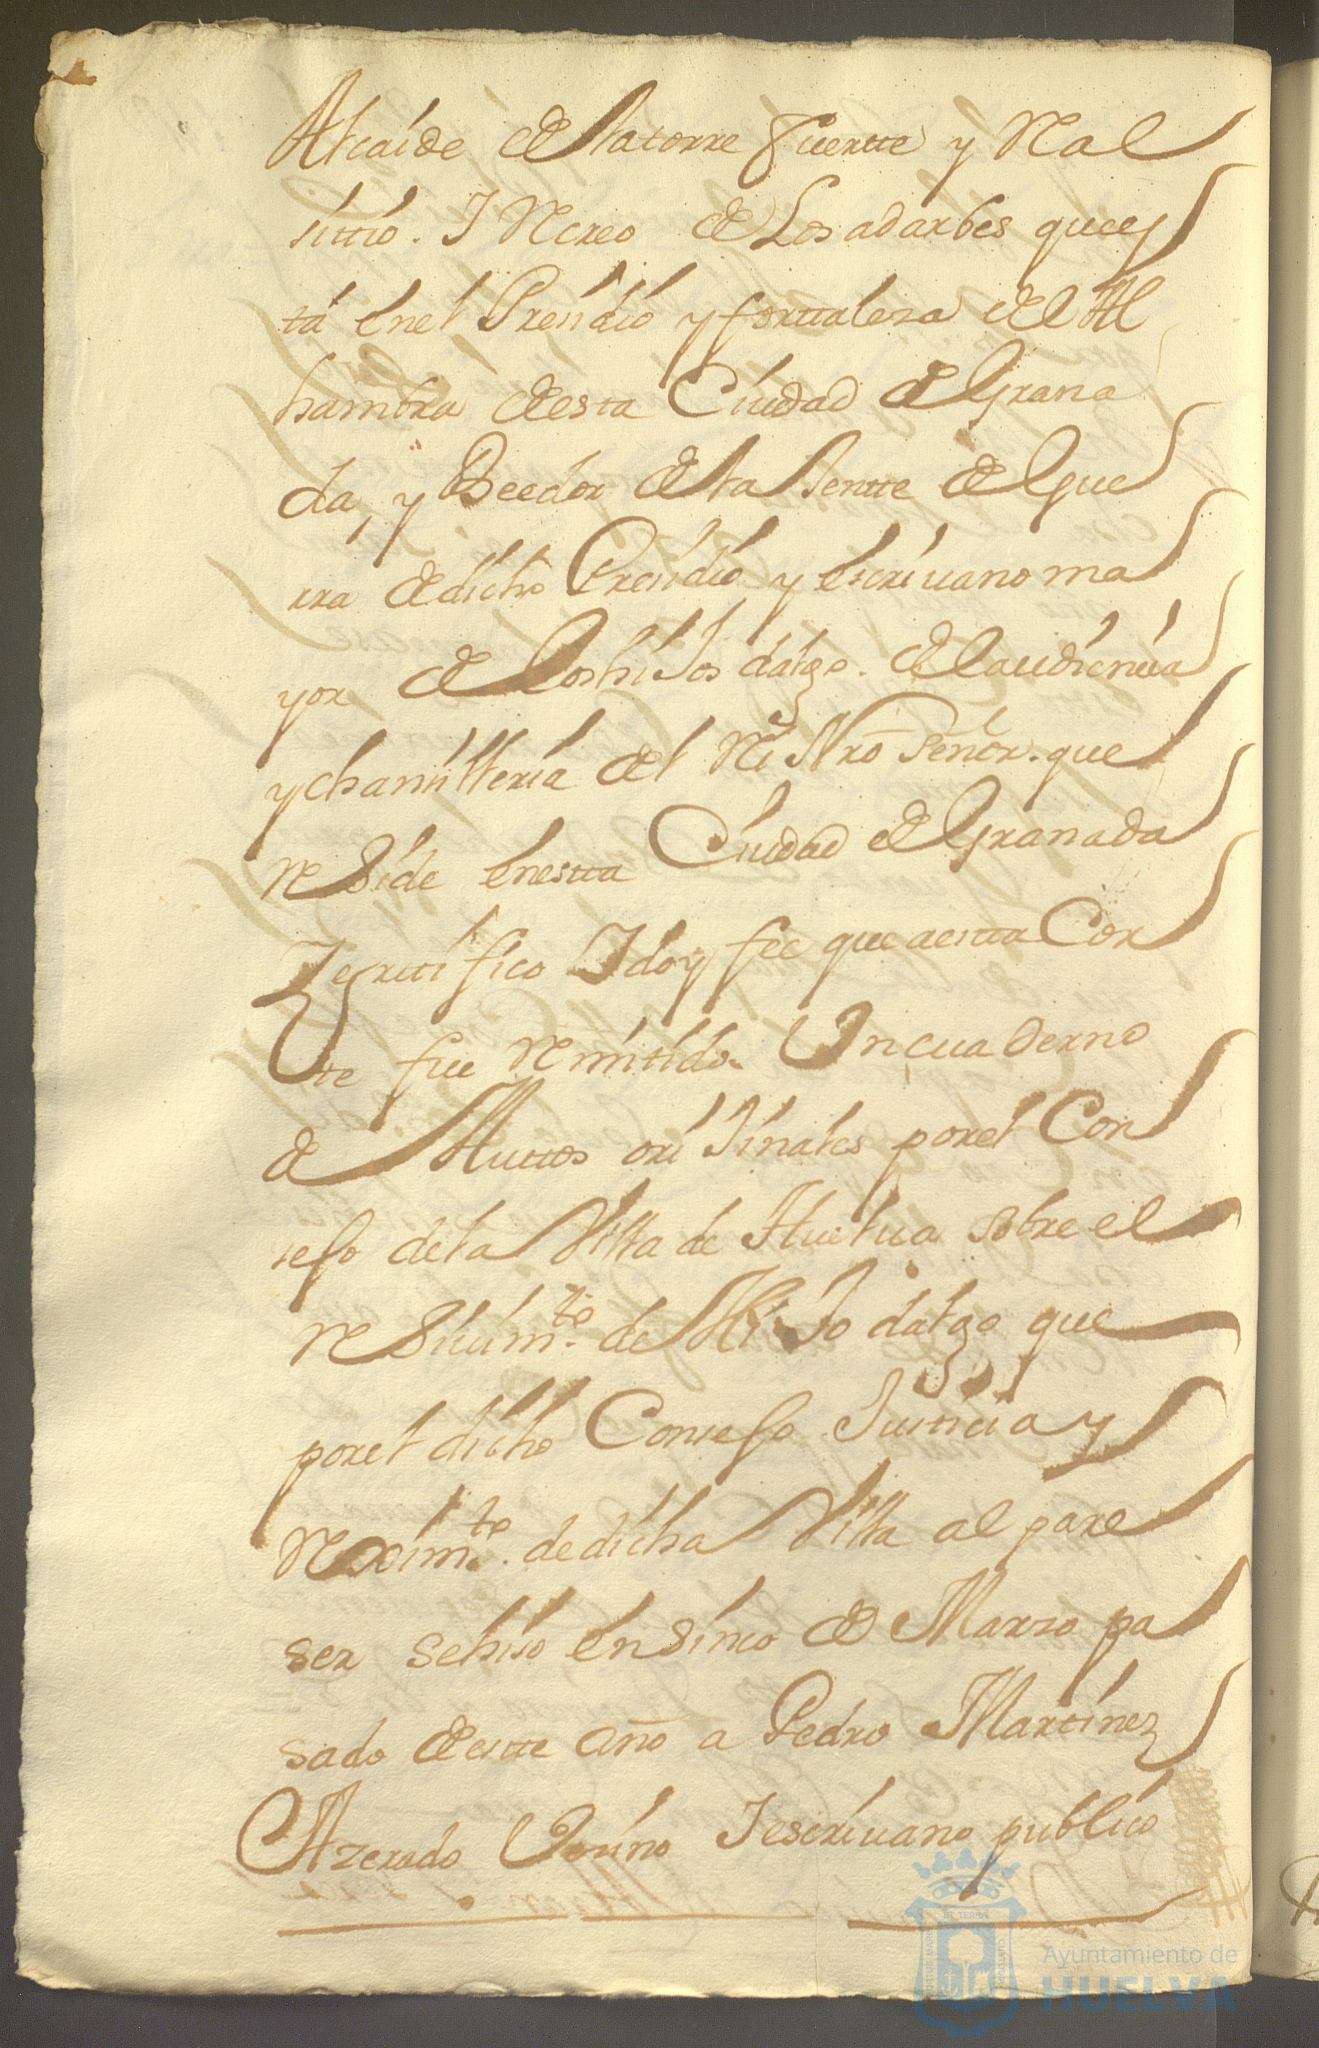 Alcaide de la torre fuertte y Real
sittio. I Recreo de Los adarbes que es
tá enel Presidio y forttalesa del Al
hambra desta Ciudad de Grana
da, y Beedor de la Jentte de Gue
rra de dicho Presidio y escriuano ma
yor de los hiJos dalgo. de la audiencia
y chansilleria del Rei Nro Señor. que
reside enestta Ciudad de Granada
Zerttifico I doy fee que a estta Cor
te fue Remitido. Un cuaderno
de Auttos oriJinales por el Con
sejo de la Villa de Huelua sobre el
reSiuim.to de HiJo dalgo que
por el dicho Consejo Justicia y
Reximto. de dicha Villa al pare
ser se hiso en Sinco de Marzo pa
sado de estte año a Pedro Martinez
Azerado Vesino I escriuano publico
Ayuntamiento de
HUELVA